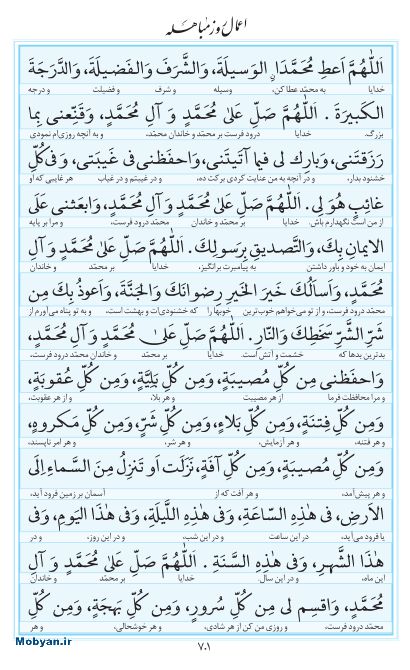 اعمال روز مباهله
اَللّٰهُمَّ اَعطِ مُحَمَّدَاِۨ الوَسيلَةَ، وَالشَّرَفَ وَالفَضيلَةَ، وَالدَّرَجَةَ
خدایا به محمّد عطا کن، وسیله و شرف و فضیلت و درجه
الكَبيرَةَ . اَللّٰهُمَّ صَلِّ عَلىٰ مُحَمَّدٍ وَ آلِ مُحَمَّدٍ، وَقَنِّعنى بِما
بزرگ. خدایا درود فرست بر محمّد و خاندان محمّد، و به آنچه روزی‌ام نمودی
رَزَقتَنى، وَبارِك لى فيما آتَيتَنى، وَاحفَظنى فى غَيبَتى، وَ فى كُلِّ
خشنود بدار، و در آنچه به من عنایت کردی برکت ده، و در غیبتم و در غیاب هر غایبی که او
غائِبٍ هُوَ لى. اَللّٰهُمَّ صَلِّ عَلىٰ مُحَمَّدٍ وَ آلِ مُحَمَّدٍ، وَابعَثنى عَلَى
از من است نگهدارم باش. خدایا بر محمّد و خاندان محمّد درود فرست، و مرا بر پایه
الايمانِ بِكَ، وَالتَّصديقِ بِرَسولِكَ. اَللّٰهُمَّ صَلِّ عَلىٰ مُحَمَّدٍ وَ آلِ
ایمان به خود و باور داشتن به پیامبرت برانگیز. خدایا بر محمّد و خاندان
مُحَمَّدٍ، وَاَسأَلُكَ خَيرَ الخَيرِ رِضوانَكَ وَالجَنَّةَ، وَاَعوذُ بِكَ مِن
محمّد درود فرست، و از تو می‌خواهم خوب‌ترین خوبها را که خشنودی‌ات و بهشت است، و به تو پناه می‌آورم از
شَرِّ الشَّرِّ سَخَطِكَ وَالنّارِ. اَللّٰهُمَّ صَلِّ عَلىٰ مُحَمَّدٍ وَ آلِ مُحَمَّدٍ،
بدترین بدها که خشمت و آتش است. خدایا بر محمّد و خاندان محمّد درود فرست،
وَاحفَظنى مِن كُلِّ مُصيبَةٍ، وَمِن كُلِّ بَليَّةٍ، وَمِن كُلِّ عُقوبَةٍ،
و مرا محافظت فرما از هر مصیبت و هر بلا، و از هر عقوبت،
وَمِن كُلِّ فِتنَةٍ، وَمِن كُلِّ بَلاءٍ، وَمِن كُلِّ شَرٍّ، وَمِن كُلِّ مَكروهٍ،
و هر فتنه، و هر آزمایش، و هر شر، و هر امر ناپسند،
وَمِن كُلِّ مُصيبَةٍ، وَمِن كُلِّ آفَةٍ، نَزَلَت اَو تَنزِلُ مِنَ السَّماءِ اِلَى
و هر پیش‌آمد، و هر آفت که از آسمان بر زمین فرود آید،
الاَرضِ، فى هٰذِهِ السّاعَةِ، وَفى هٰذِهِ اللَّيلَةِ، وَفى هٰذَا اليَومِ، وَفى
یا فرود می‌آید، در این ساعت و در این شب، و در این روز، و در
هٰذَا الشَّهرِ، وَفى هٰذِهِ السَّنَةِ . اَللّٰهُمَّ صَلِّ عَلىٰ مُحَمَّدٍ وَ آلِ
این ماه، و در این سال. خدایا بر محمّد و خاندان
مُحَمَّدٍ، وَاقسِم لى مِن كُلِّ سُرورٍ، وَمِن كُلِّ بَهجَةٍ، وَمِن كُلِّ
محمّد درود فرست، و روزی من کن از هر شادی، و هر خوشحالی، و هر
۷۰۱
Mobyan.ir